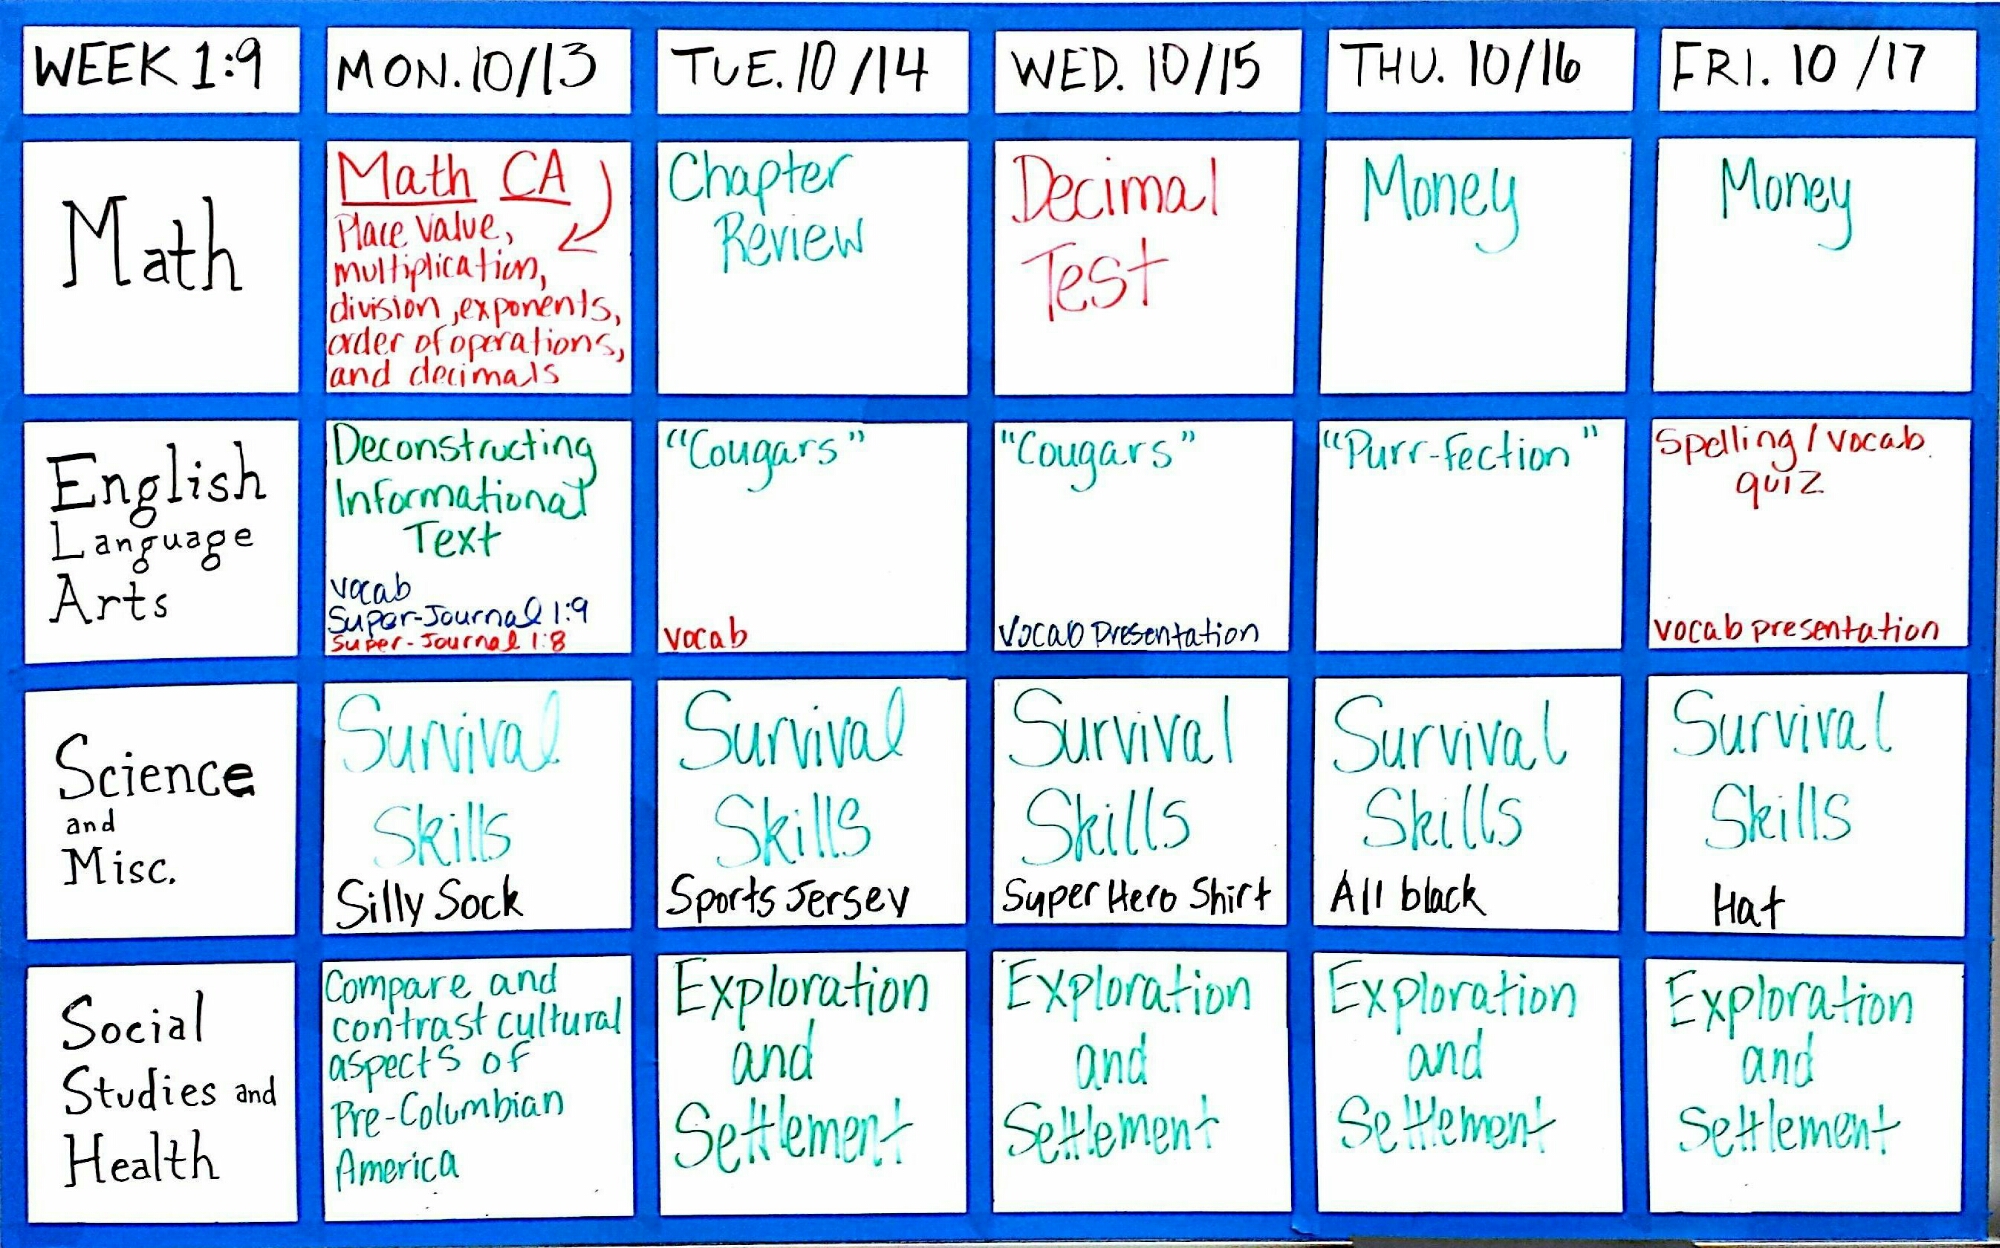 WEEK 1:9
MON. 10/13
TUE. 10/14
WED. 10/15
THU. 10/16
FRI. 10/17
Math
Math CA
Place value,
multiplication,
division, exponents,
order of operations,
and decimals
Chapter
Review
Decimal
Test
Money
Money
English
Language
Arts
Deconstructing
Informational
Text
vocab
Super-Journal 1:9
Super-Journal 1:8
"Cougars"
vocab
"Cougars"
Vocab Presentation
"Purr-fection"
Spelling/vocab
quiz
vocab presentation
Science
and
Misc.
Survival
Skills
Silly Sock
Survival
Skills
Sports Jersey
Survival
Skills
Super Hero Shirt
Survival
Skills
All black
Survival
Skills
Hat
Social
Studies and
Health
Compare and
contrast cultural
aspects of
Pre-Columbian
America
Exploration
and
Settlement
Exploration
and
Settlement
Exploration
and
Settlement
Exploration
and
Settlement